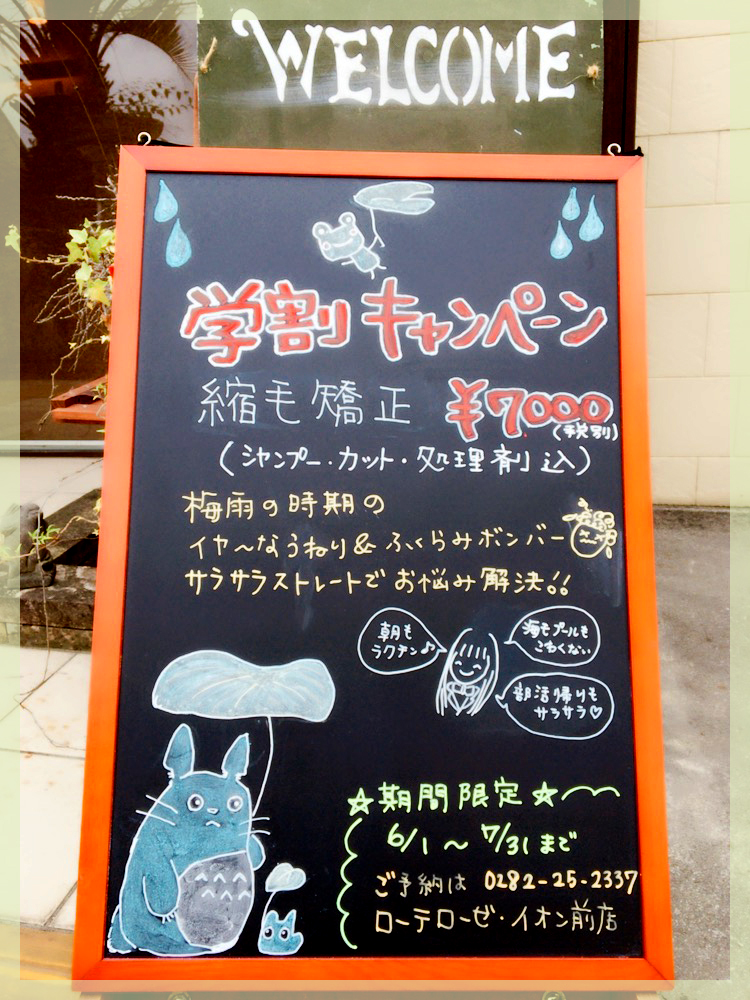 WELCOME
学割キャンペーン
縮毛矯正 ¥7000
(税別)
(シャンプー・カット・処理剤込)
梅雨の時期の
イヤ〜なうねり&ふくらみボンバー
サラサラストレートでお悩み解決!!
朝も
ラクチン♪
海もプールも
こわくない
部活帰りも
サラサラ♡
☆期間限定☆
6/1〜7/31まで
ご予約は 0282-25-2337
ローテローゼ・イオン前店